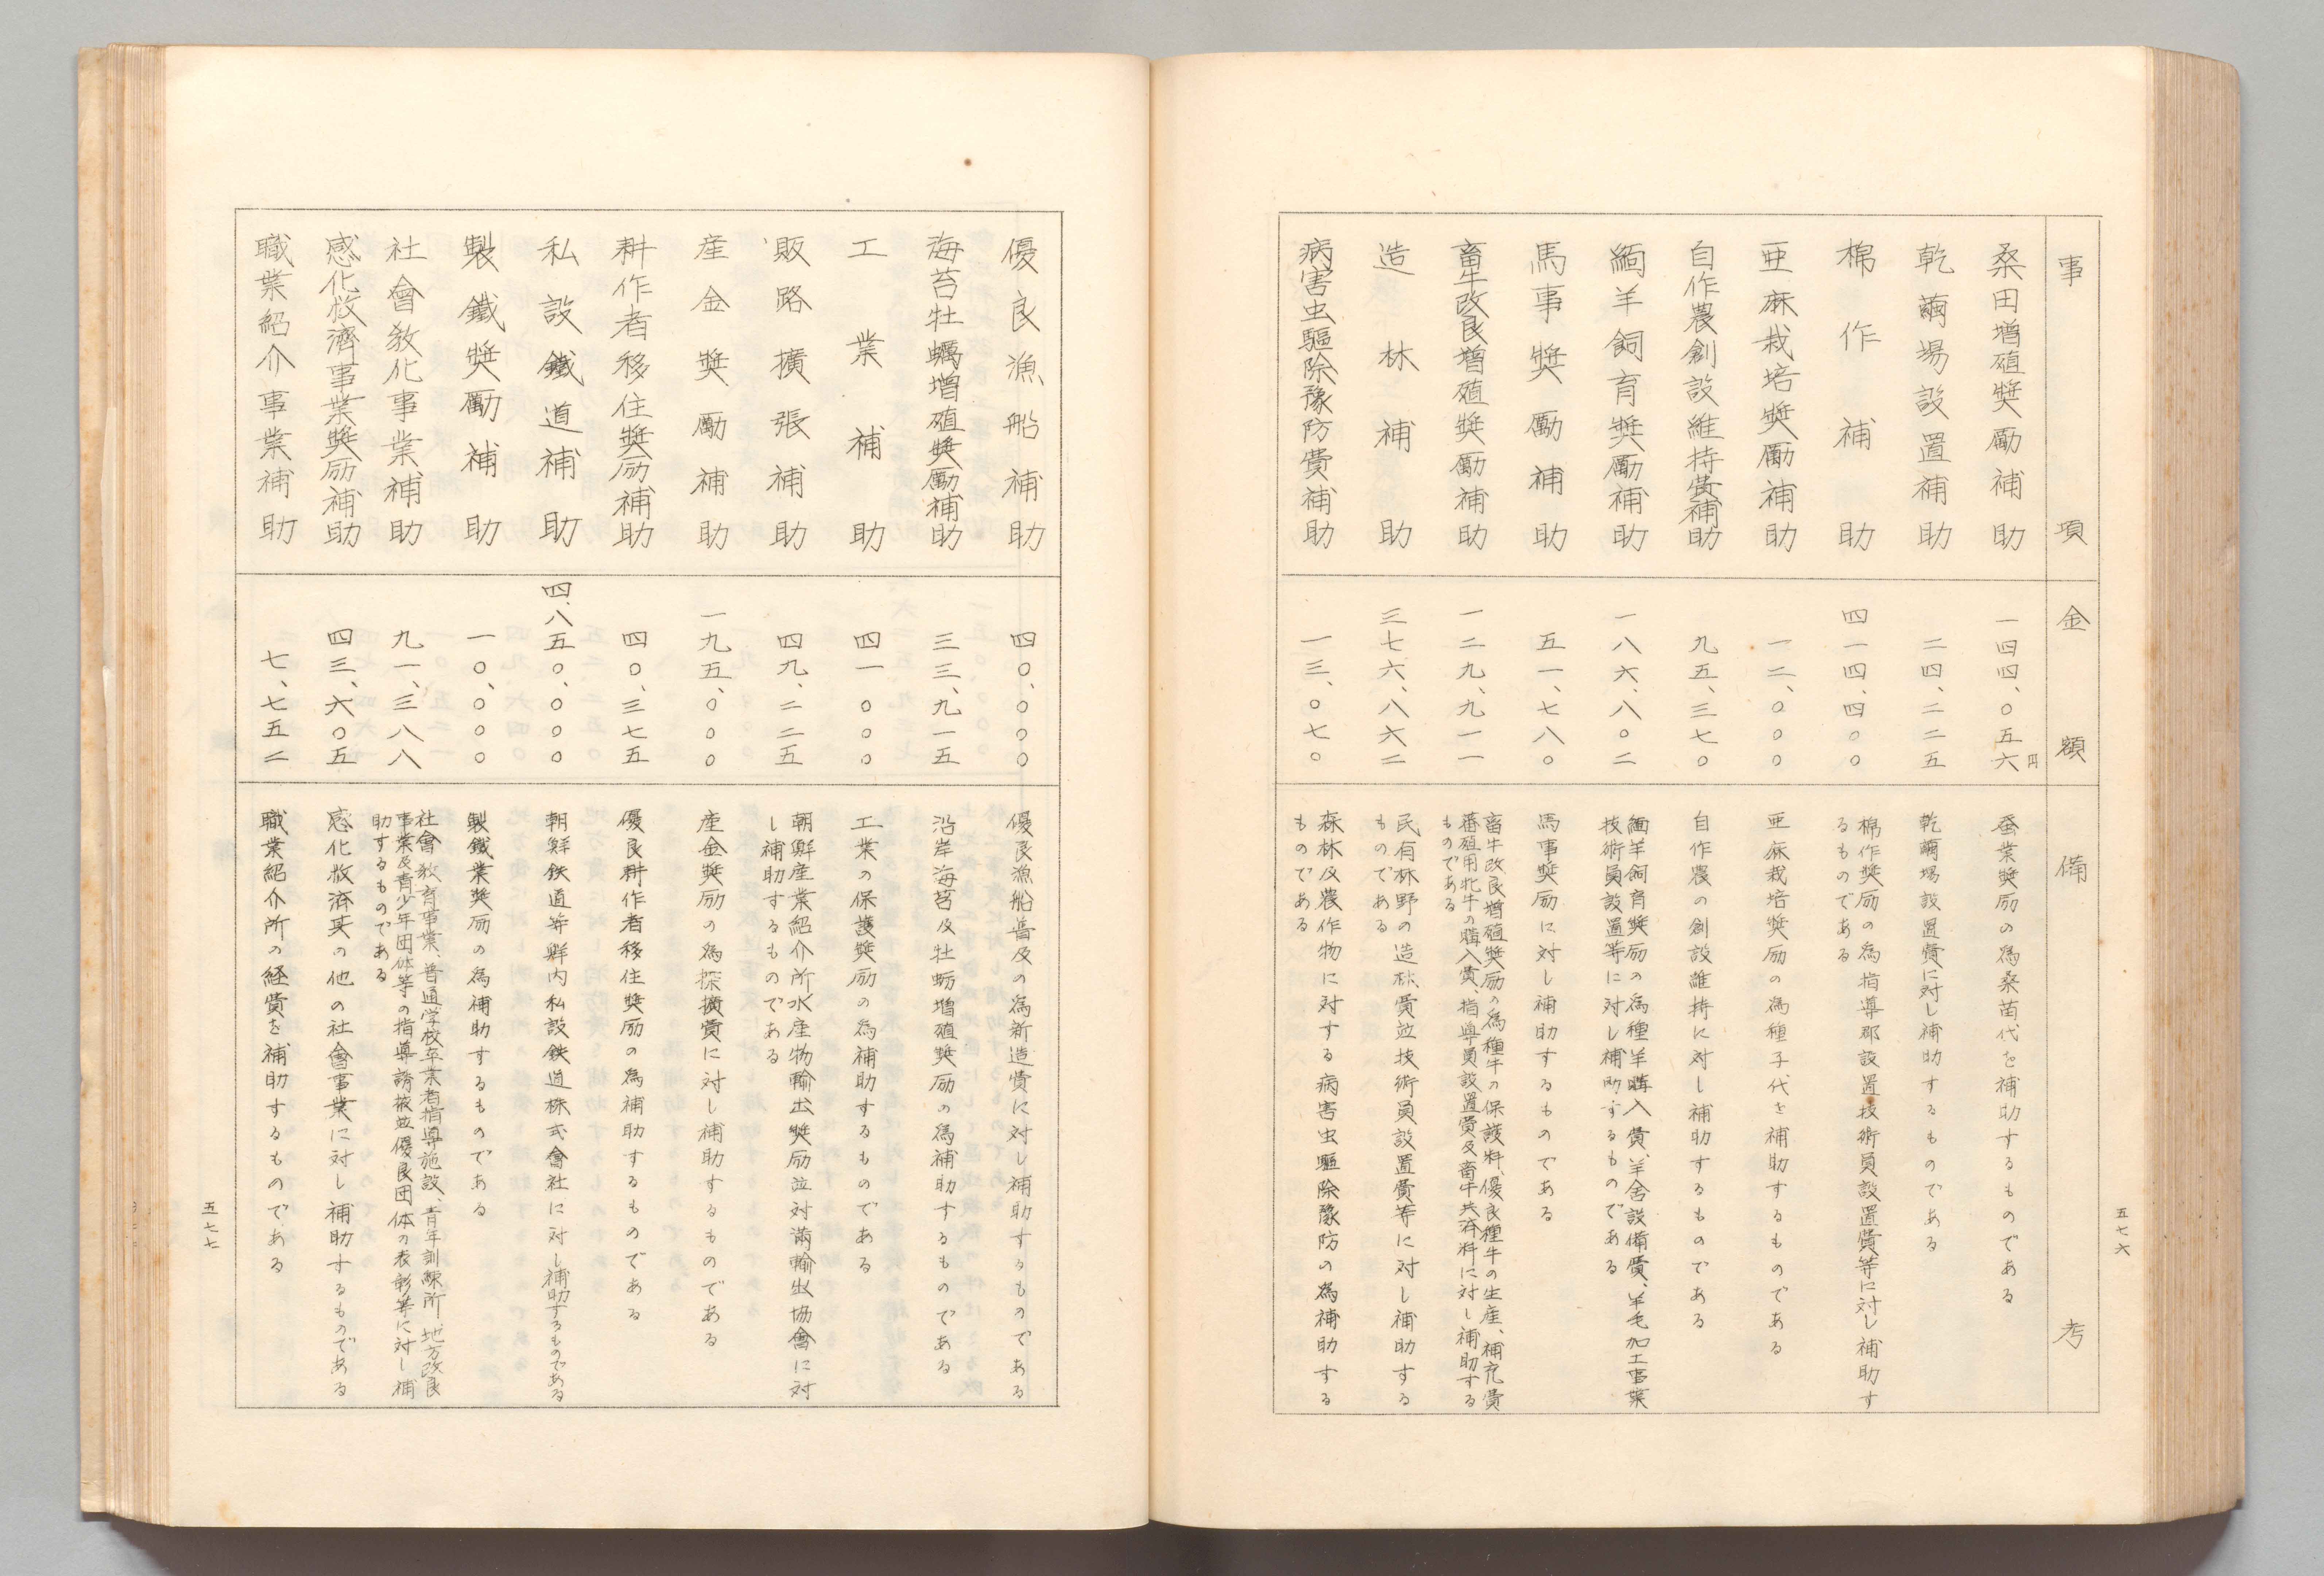 事項
金額
備考
桑田増殖奨励補助
一四四、〇五六円
蚕業奨励の為桑苗代を補助するものである
乾繭場設置補助
二四、二二五
乾繭場設置費に対し補助するものである
棉作補助
四一四、四〇〇
棉作奨励の為指導郡設置技術員設置費等に対し補助す
るものである
亜麻栽培奨励補助
一二、〇〇〇
亜麻栽培奨励の為種子代を補助するものである
自作農創設維持費補助
九五、三七〇
自作農の創設維持に対し補助するものである
緬羊飼育奨励補助
一八六、八〇二
緬羊飼育奨励の為種羊購入費、羊舎設備費、羊毛加工事業
技術員設置等に対し補助するものである
馬事奨励補助
五一、七八〇
馬事奨励に対し補助するものである
畜牛改良増殖奨励補助
一二九、九一一
畜牛改良増殖奨励の為種牛の保護料、優良種牛の生産、補充費
蕃殖用牝牛の購入費、指導員設置費及畜牛共済料に対し補助する
ものである
造林補助
三七六、八六二
民有林野の造林費並技術員設置費等に対し補助する
ものである
病害虫駆除豫防費補助
一三、〇七〇
森林及農作物に対する病害虫駆除豫防の為補助する
ものである
五七六
優良漁船補助
四〇、〇〇〇
優良漁船普及の為新造費に対し補助するものである
海苔牡蠣増殖奨励補助
三三、九一五
沿岸海苔及牡蛎増殖奨励の為補助するものである
工業補助
四一、〇〇〇
工業の保護奨励の為補助するものである
販路擴張補助
四九、二二五
朝鮮産業紹介所水産物輸出奨励並対満輸出協會に対
し補助するものである
産金奨勵補助
一九五、〇〇〇
産金奨励の為探擴費に対し補助するものである
耕作者移住奨励補助
四〇、三七五
優良耕作者移住奨励の為補助するものである
私設鐵道補助
四、八五〇、〇〇〇
朝鮮鉄道等鮮内私設鉄道株式會社に対し補助するものである
製鐵奨勵補助
一〇、〇〇〇
製鐵業奨励の為補助するものである
社會教化事業補助
九一、三八八
社會教育事業、普通学校卒業者指導施設、青年訓練所、地方改良
事業及青少年団体等の指導誘掖並優良団体の表彰等に対し補
助するものである
感化救済事業奨励補助
四三、六〇五
感化救済其の他の社會事業に対し補助するものである
職業紹介事業補助
七、七五二
職業紹介所の経費を補助するものである
五七七